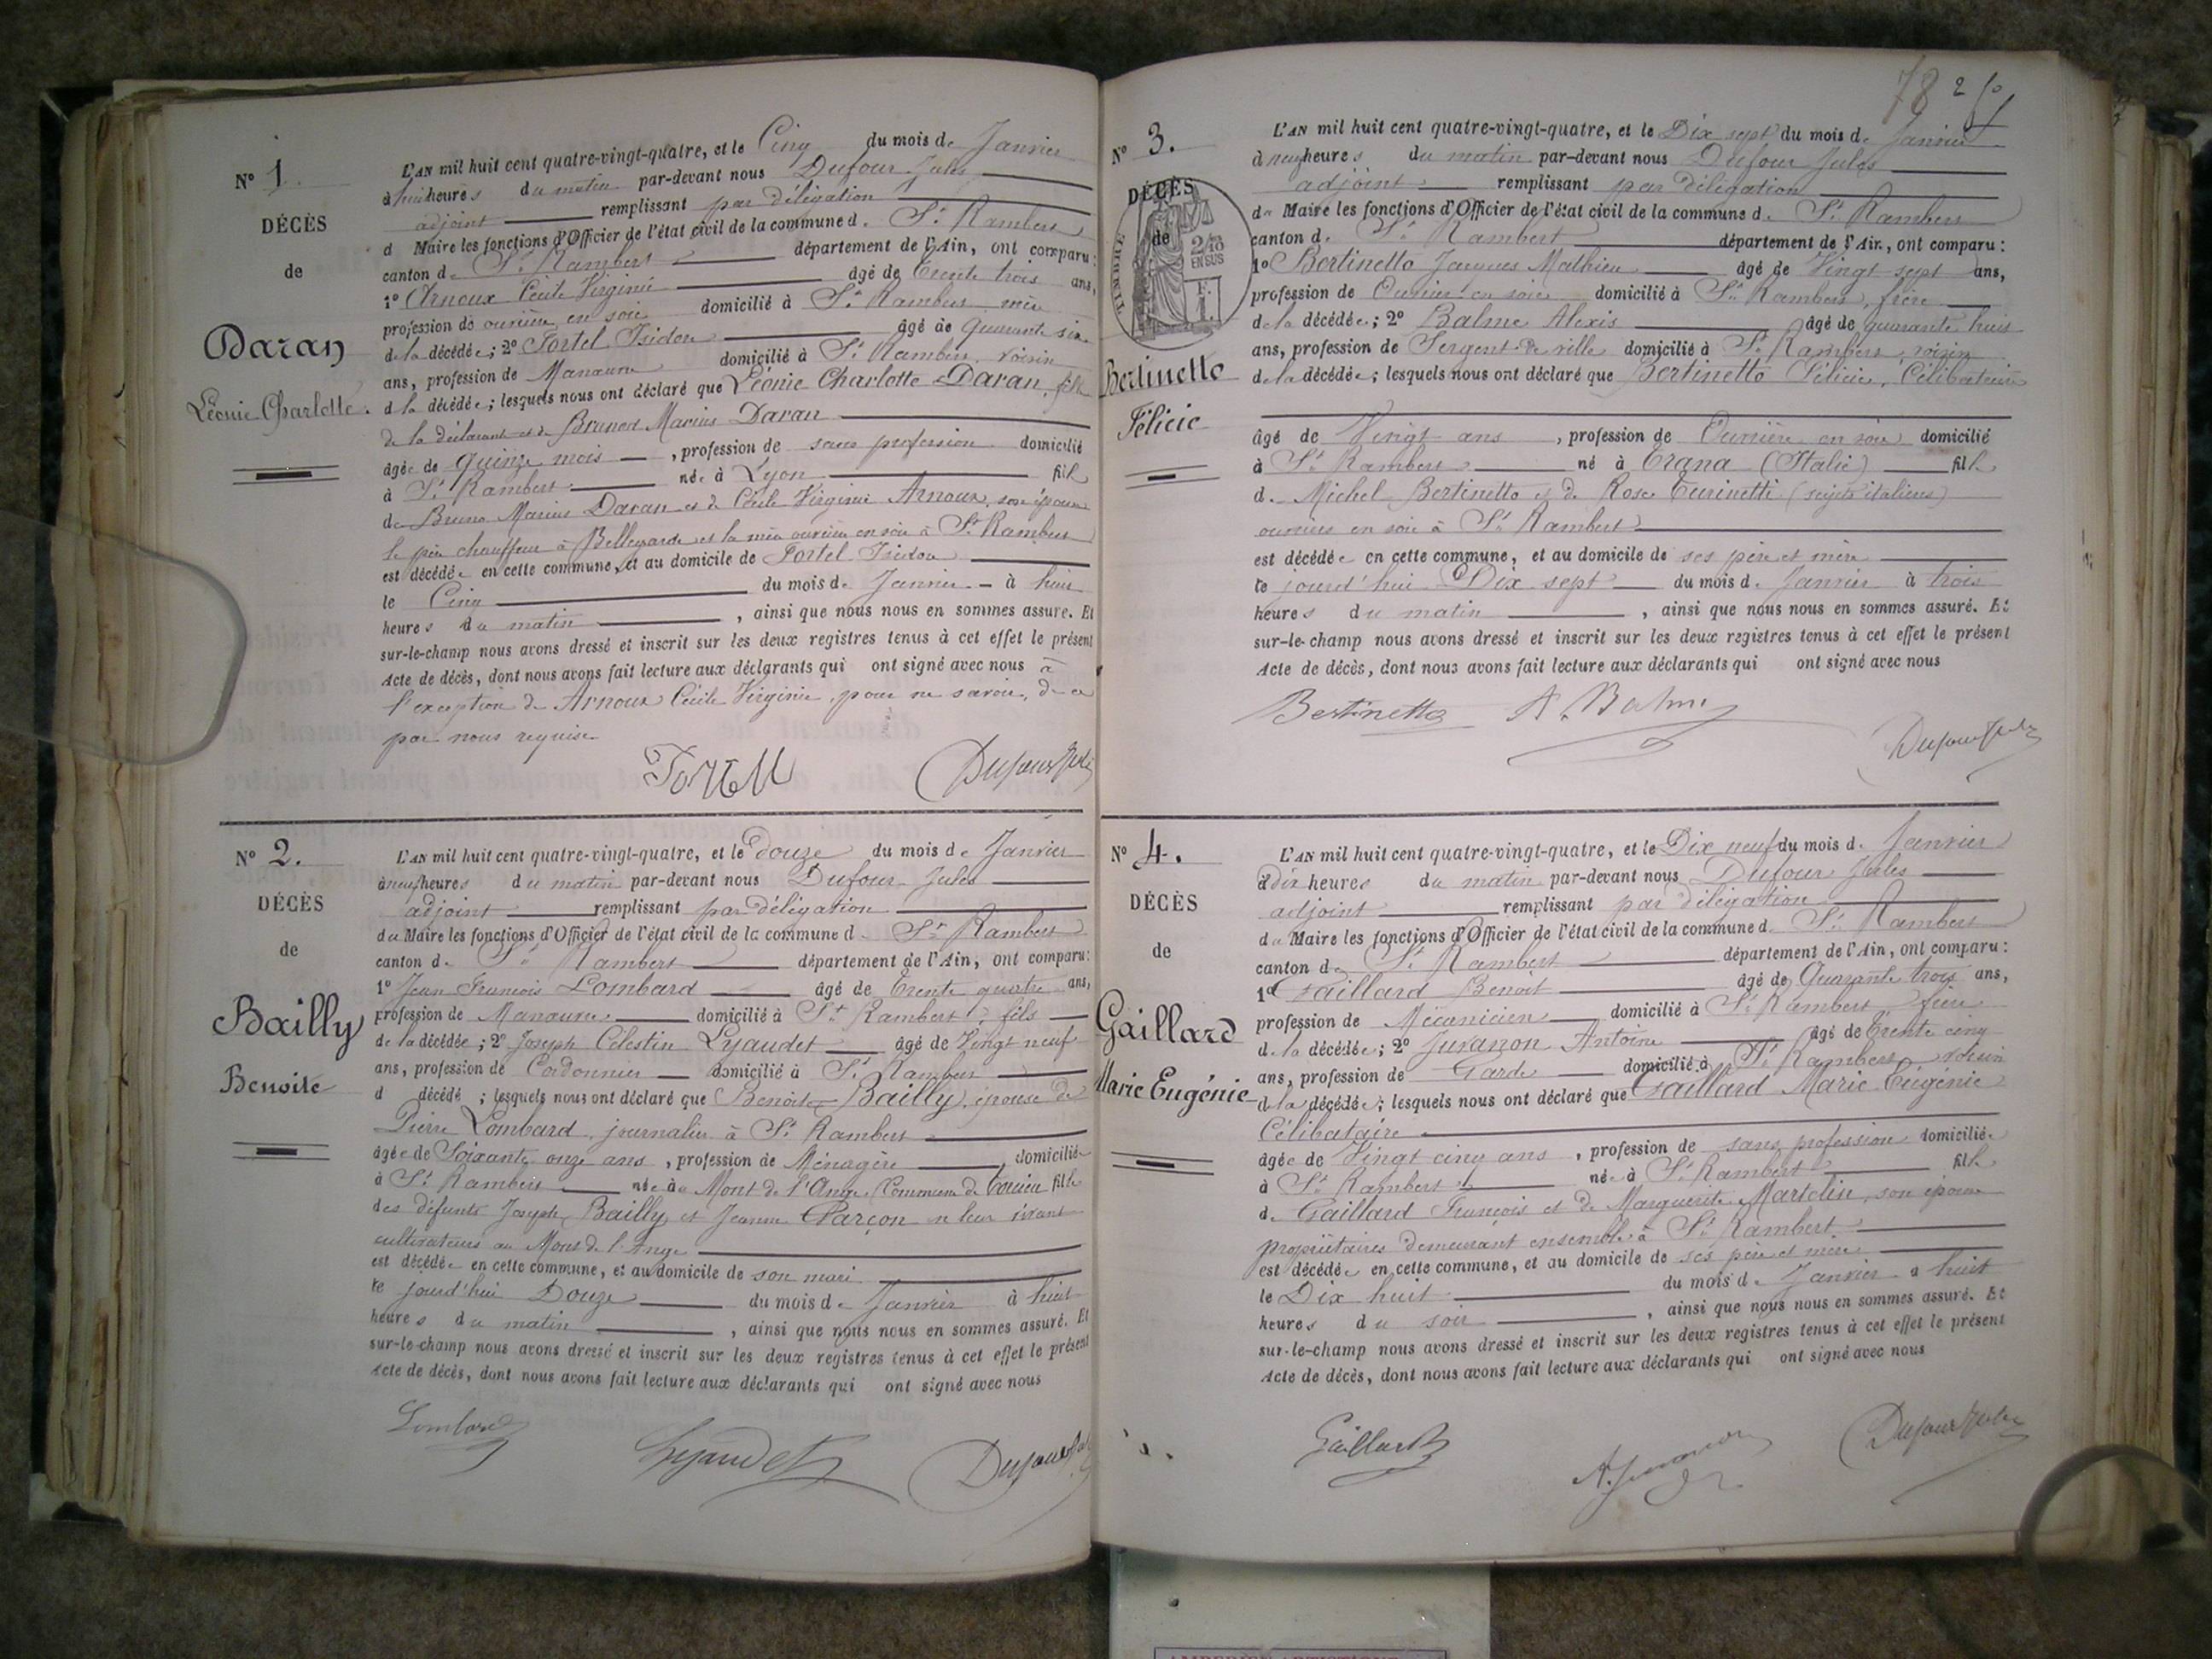 Nº 1.
DÉCÈS
de
Daran
Léonie Charlotte.
L'AN mil huit cent quatre-vingt-quatre, et le Cinq du mois de Janvier
à huit heures du matin par-devant nous Dufour Jules
adjoint remplissant par délégation
d Maire les fonctions d'Officier de l'état civil de la commune d. St Rambert
canton d. St Rambert département de l'Ain, ont comparu:
1º Arnoux Cécile Virginie âgé de Trente trois ans,
profession de ouvrière en soie domicilié à St Rambert mère
de la décédée; 2º Tortel Isidore âgé de quarante six
ans, profession de Manœuvre domicilié à St Rambert, voisin
d la décédée; lesquels nous ont déclaré que Léonie Charlotte Daran, fille
de la déclarant et de Bruno Marius Daran
âgée de quinze mois, profession de sans profession domicilié
à St Rambert née à Lyon fille
de Bruno Marius Daran et de Cécile Virginie Arnoux, son épouse
le père chauffeur à Bellegarde et la mère ouvrière en soie à St Rambert
est décédée en cette commune, et au domicile de Tortel Isidore
le Cinq du mois de Janvier à huit
heures du matin, ainsi que nous nous en sommes assuré. Et
sur-le-champ nous avons dressé et inscrit sur les deux registres tenus à cet effet le présent
Acte de décès, dont nous avons fait lecture aux déclarants qui ont signé avec nous à
l'exception de Arnoux Cécile Virginie, pour ne savoir, de ce
par nous requise
Tortel Dufour Jules
Nº 2.
DÉCÈS
de
Bailly
Benoite
L'AN mil huit cent quatre-vingt-quatre, et le douze du mois de Janvier
à neuf heures du matin par-devant nous Dufour Jules
adjoint remplissant par délégation
du Maire les fonctions d'Officier de l'état civil de la commune d. St Rambert
canton d. St Rambert département de l'Ain, ont comparu:
1º Jean François Lombard âgé de Trente quatre ans,
profession de Manœuvre domicilié à St Rambert, fils
de la décédée; 2º Joseph Célestin Lyaudet âgé de Vingt neuf
ans, profession de Cordonnier domicilié à St Rambert
d décédé ; lesquels nous ont déclaré que Benoite Bailly, épouse de
Pierre Lombard, journalier à St Rambert
âgée de Soixante onze ans, profession de Ménagère, domiciliée
à St Rambert née à Mont de l'Ange, Commune de fille
des défunts Joseph Bailly et Jeanne Parçon en leur vivant
cultivateurs au Mont de l'Ange
est décédée en cette commune, et au domicile de son mari
le jourd'hui Douze du mois de Janvier à huit
heures du matin, ainsi que nous nous en sommes assuré. Et
sur-le-champ nous avons dressé et inscrit sur les deux registres tenus à cet effet le présent
Acte de décès, dont nous avons fait lecture aux déclarants qui ont signé avec nous
Lombard Lyaudet Dufour Jules
78 2
Nº 3.
DÉCÈS
de
TIMBRE
2/10
EN SUS
F.
1.
Bertinetto
Félicie
L'AN mil huit cent quatre-vingt-quatre, et le Dix sept du mois d. Janvier
à neuf heures du matin par-devant nous Dufour Jules
adjoint remplissant par délégation
du Maire les fonctions d'Officier de l'état civil de la commune d. St Rambert
canton d. St Rambert département de l'Ain, ont comparu:
1º Bertinetto Jacques Mathieu âgé de Vingt sept ans,
profession de Ouvrier en soie domicilié à St Rambert, frère
de la décédée; 2º Balme Alexis âgé de quarante huit
ans, profession de Sergent de ville domicilié à St Rambert, voisin
de la décédée; lesquels nous ont déclaré que Bertinetto Félicie, Célibataire
âgé de Vingt ans, profession de Ouvrière en soie domicilié
à St Rambert né à Trana (Italie) fille
d. Michel Bertinetto et de Rose Turinetti (sujets italiens)
ouvriers en soie à St Rambert
est décédée en cette commune, et au domicile de ses père et mère
le jourd'hui Dix sept du mois d. Janvier à trois
heures du matin, ainsi que nous nous en sommes assuré. Et
sur-le-champ nous avons dressé et inscrit sur les deux registres tenus à cet effet le présent
Acte de décès, dont nous avons fait lecture aux déclarants qui ont signé avec nous
Bertinetto A. Balme
Dufour Jules
Nº 4.
DÉCÈS
de
Gaillard
Marie Eugénie
L'AN mil huit cent quatre-vingt-quatre, et le Dix neuf du mois d. Janvier
à dix heures du matin par-devant nous Dufour Jules
adjoint remplissant par délégation
du Maire les fonctions d'Officier de l'état civil de la commune d. St Rambert
canton de St Rambert département de l'Ain, ont comparu:
1º Gaillard Benoit âgé de Quarante trois ans,
profession de Mécanicien domicilié à St Rambert, frère
de la décédée; 2º Juvanon Antoine âgé de Trente cinq
ans, profession de Garde domicilié à St Rambert voisin
de la décédée; lesquels nous ont déclaré que Gaillard Marie Eugénie
Célibataire
âgée de Vingt cinq ans, profession de sans profession domiciliée
à St Rambert née à St Rambert fille
d. Gaillard François et de Marguerite Martelin, son épouse
propriétaires demeurant ensemble à St Rambert
est décédée en cette commune, et au domicile de ses père et mère
le Dix huit du mois de Janvier à huit
heures du soir, ainsi que nous nous en sommes assuré. Et
sur-le-champ nous avons dressé et inscrit sur les deux registres tenus à cet effet le présent
Acte de décès, dont nous avons fait lecture aux déclarants qui ont signé avec nous
Gaillard A. Juvanon Dufour Jules